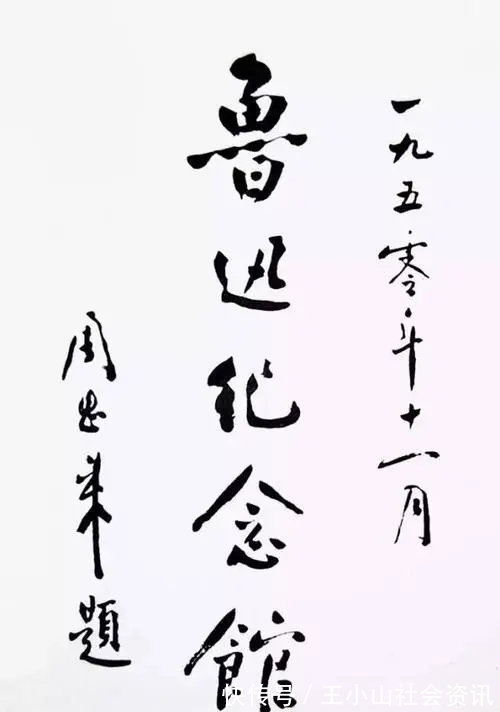 一九五零年十一月
鲁迅纪念館
周恩来題
快传号 / 王小山社会资讯